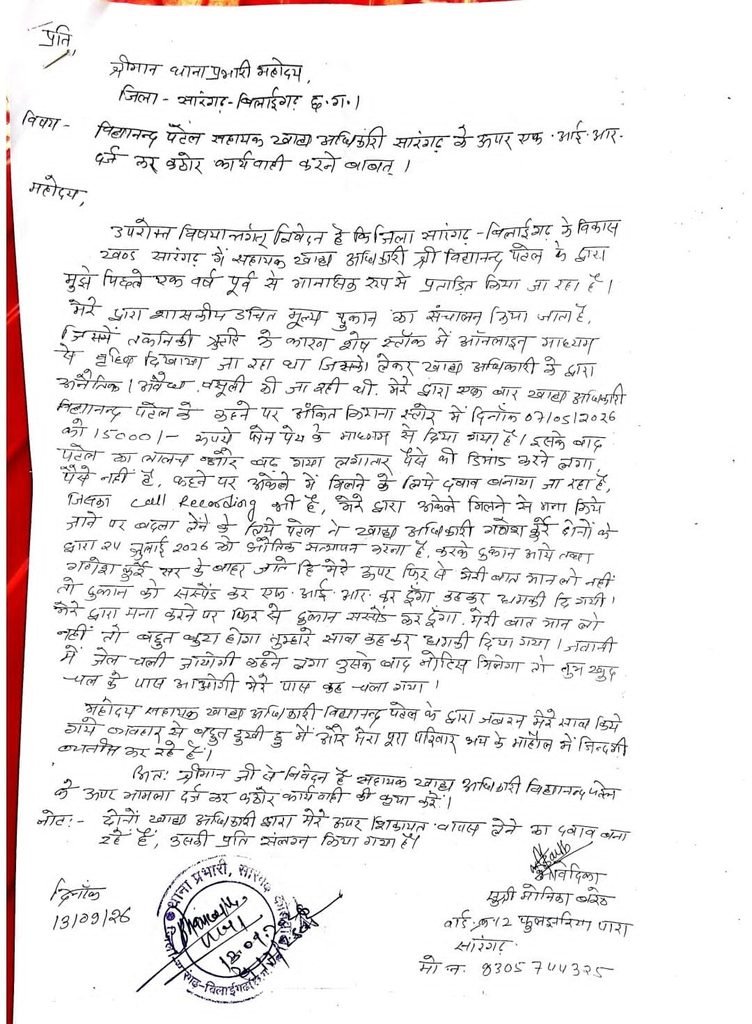 प्रति,
श्रीमान थाना प्रभारी महोदय,
जिला - सारंगढ़-बिलाईगढ़ छ.ग.।
विषय - विद्यानन्द पटेल सहायक खाद्य अधिकारी सारंगढ़ के ऊपर एफ.आई.आर.
दर्ज कर कठोर कार्यवाही करने बाबत्।
महोदय,
उपरोक्त विषयान्तर्गत निवेदन है कि जिला सारंगढ़-बिलाईगढ़ के विकास
खण्ड सारंगढ़ में सहायक खाद्य अधिकारी श्री विद्यानन्द पटेल के द्वारा
मुझे पिछले एक वर्ष पूर्व से मानसिक रूप से प्रताड़ित किया जा रहा है।
मेरे द्वारा शासकीय उचित मूल्य दुकान का संचालन किया जाता है,
जिसमें तकनिकी त्रुटि के कारण शेष स्टॉक में ऑनलाइन माध्यम
से दिखाया जा रहा था जिसको लेकर खाद्य अधिकारी के द्वारा
अनैतिक / अवैध वसूली की जा रही थी. मेरे द्वारा एक बार खाद्य अधिकारी
विद्यानन्द पटेल के कहने पर अंकित किराना स्टोर में दिनॉक 07/05/2026
को 15000/- रूपये फोन पेय के माध्यम से दिया गया है। इसके बाद
पटेल का लालच और बढ़ गया लगातार पैसे की डिमांड करने लगा,
पैसे नहीं है, कहने पर अकेले में मिलने के लिये दबाव बनाया जा रहा है,
जिसका Call Recording भी है, मेरे द्वारा अकेले मिलने से मना किये
जाने पर बदला लेंने के लिये पटेल ने खाद्य अधिकारी गणेश कुर्रे दोनों के
द्वारा 24 जुलाई 2026 को भौतिक सत्यापन करना है, करके दुकान आये तथा
गणेश कुर्रे सर के बाहर जाते हि मेरे ऊपर फिर से मेरी बात मान लो नहीं
तो दुकान को सस्पेंड कर एफ.आई.आर. कर दूंगा कह कर धमकी दि गयी।
मेरे द्वारा मना करने पर फिर से दुकान सस्पेंड कर दूँगा. मेरी बात मान लो
नहीं तो बहुत बुरा होगा तुम्हारे साथ कह कर धमकी दिया गया। जवानी
में जेल चली जायोगी कहने लगा उसके बाद नोटिस मिलेगा तो तुम खुद
चल के पास आओगी मेरे पास कह चला गया।
महोदय सहायक खाद्य अधिकारी विद्यानन्द पटेल के द्वारा जबरन मेरे साथ किये
गये व्यवहार से बहुत दुखी हु मैं और मेरा पूरा परिवार भय के माहौल में जिन्दगी
व्यतीत कर रहे है।
अतः श्रीमान जी से निवेदन है सहायक खाद्य अधिकारी विद्यानन्द पटेल
के ऊपर मामला दर्ज कर कठोर कार्यवाही की कृपा करें।
नोट:- दोनों खाद्य अधिकारी द्वारा मेरे ऊपर शिकायत वापस लेने का दबाव बना
रहे हैं, उसकी प्रति संलग्न किया गया है।
दिनॉक
13/09/26
थाना प्रभारी, सारंगढ़
सारंगढ़-बिलाईगढ़
आवेदिका
सुश्री मोनिका बरेठ
वार्ड क्र 12 फुलझरिया पारा
सारंगढ़
मो न. 8305744325